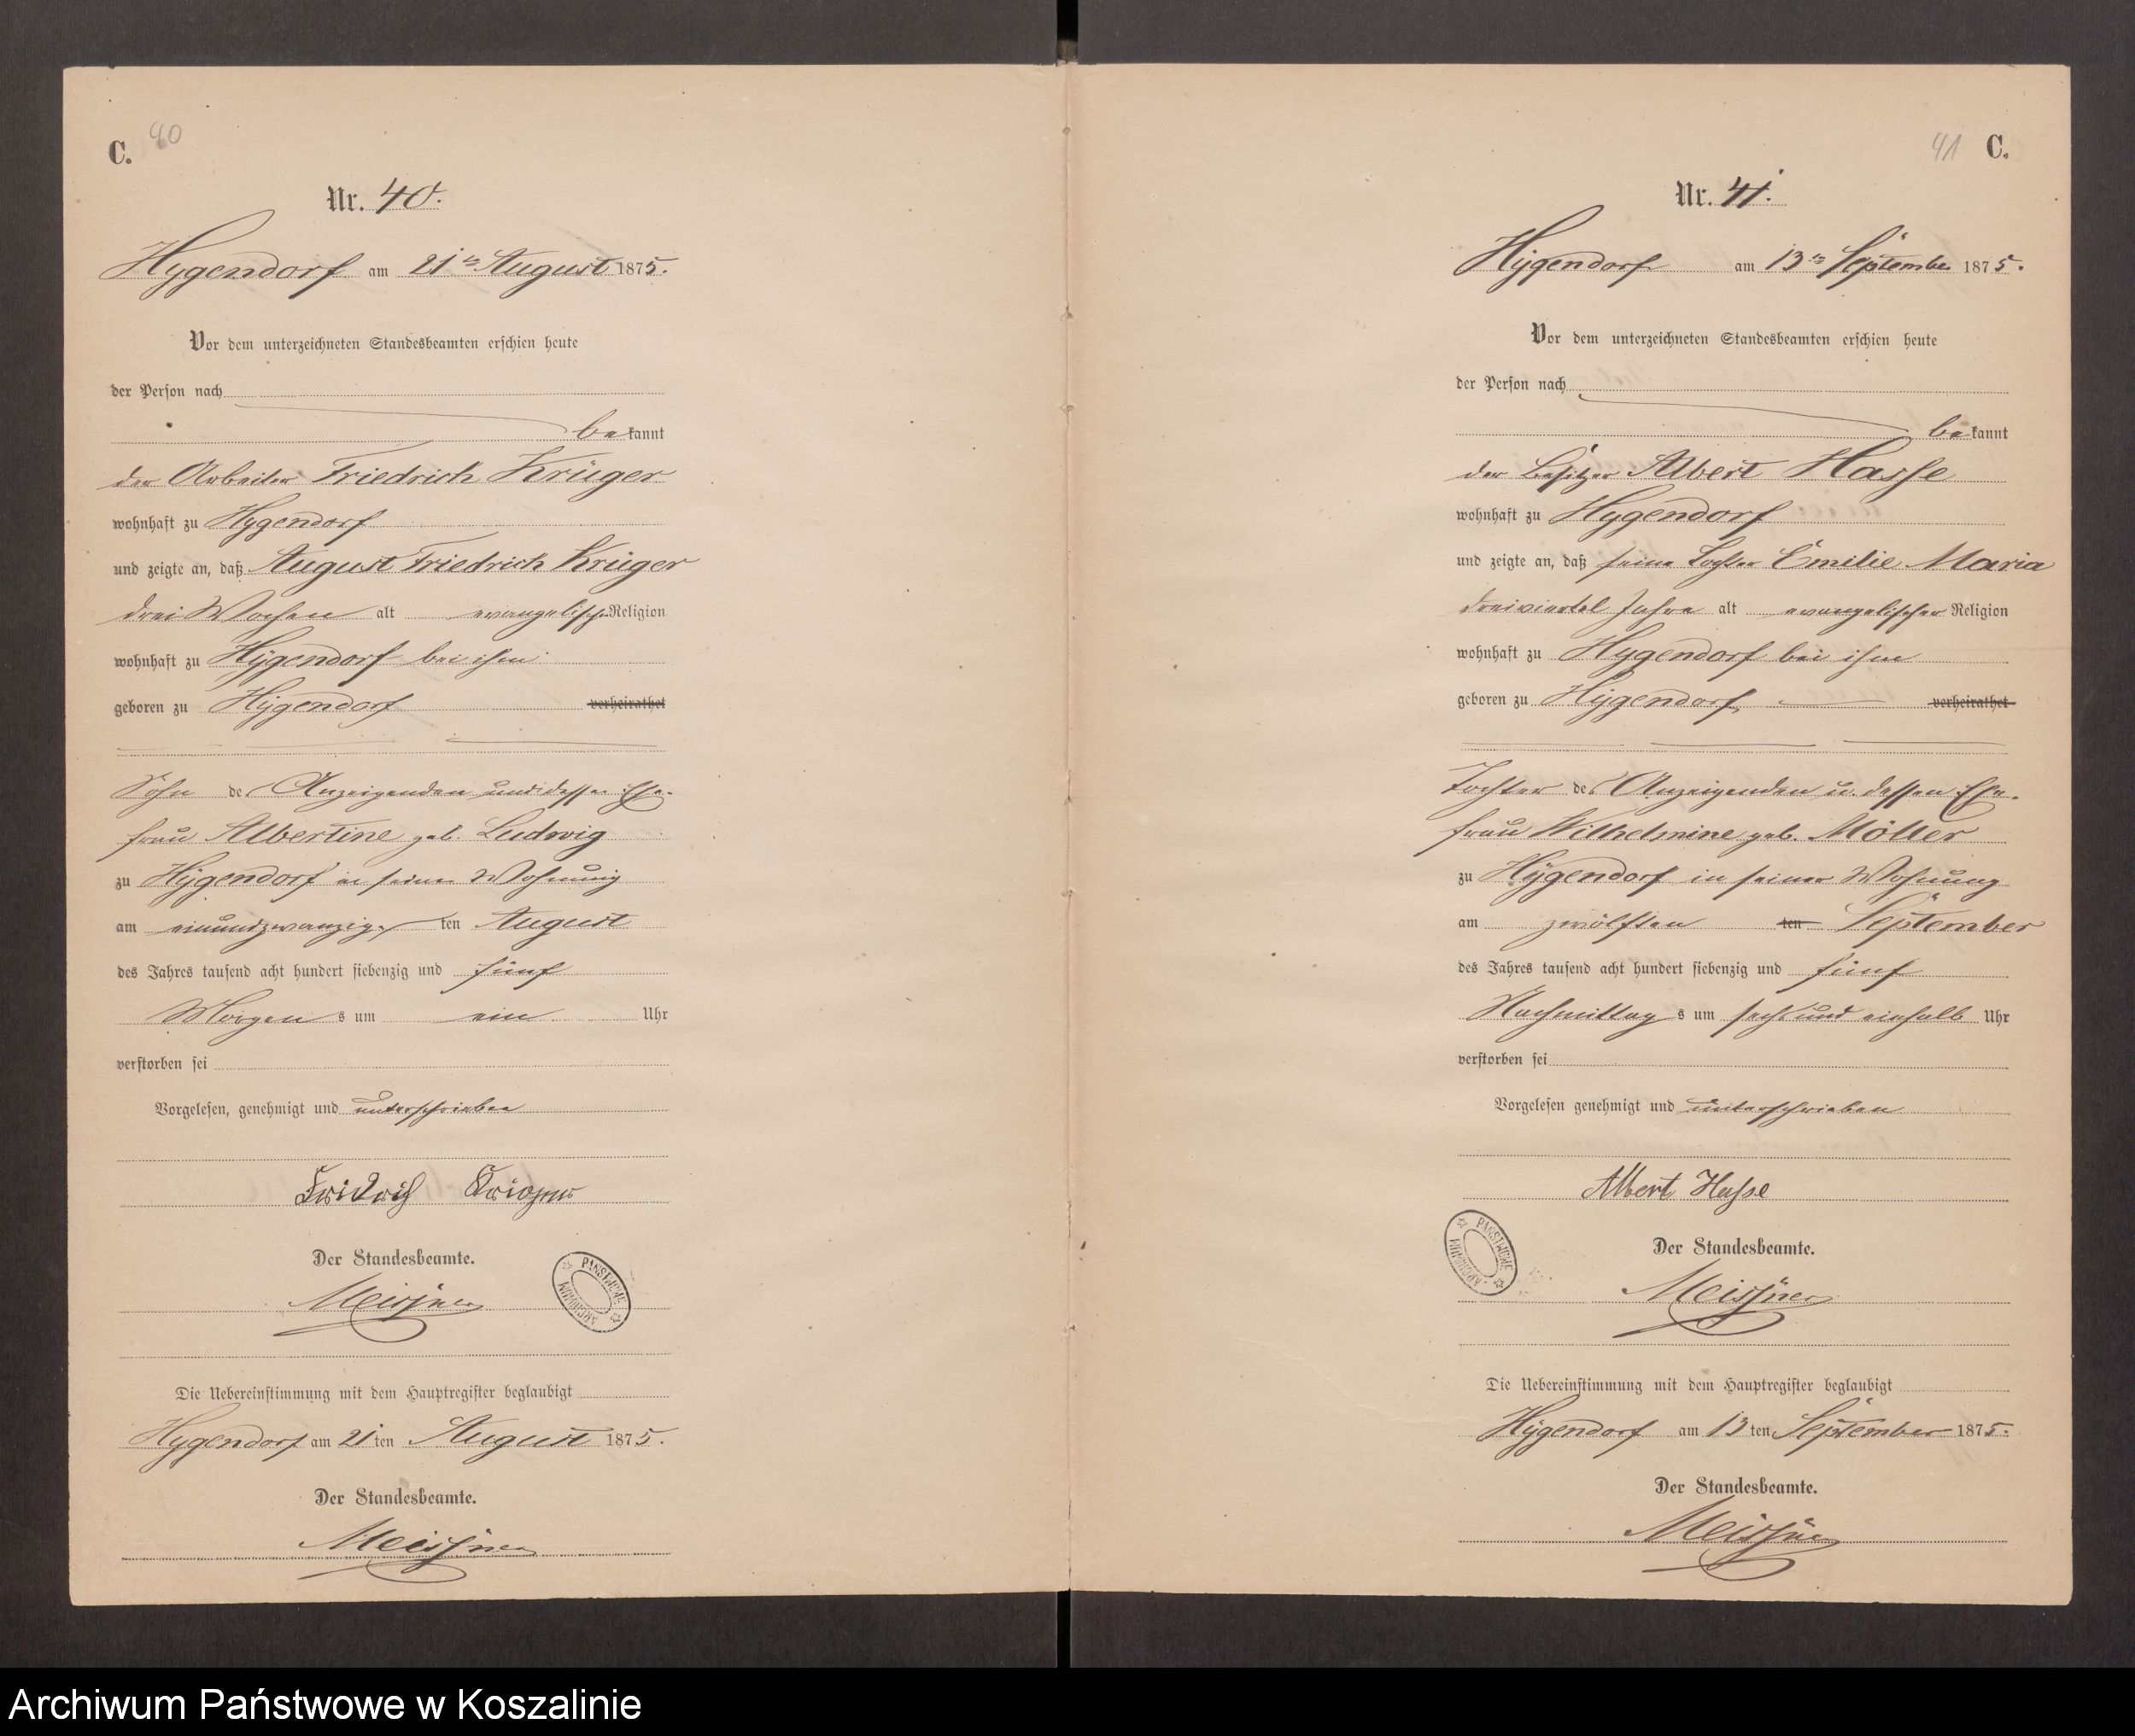 C. 40
Nr. 40.
Hygendorf am 21ten August 1875.
Vor dem unterzeichneten Standesbeamten erschien heute
der Person nach
bekannt
der Arbeiter Friedrich Krüger
wohnhaft zu Hygendorf
und zeigte an, daß August Friedrich Krüger
drei Wochen alt evangelischer Religion
wohnhaft zu Hygendorf bei ihm
geboren zu Hygendorf verheirathet
Sohn des Anzeigenden und dessen Ehe-
frau Albertine geb. Ludwig
zu Hygendorf in seiner Wohnung
am einundzwanzigsten August
des Jahres tausend acht hundert siebenzig und fünf
Morgens um ein Uhr
verstorben sei
Vorgelesen, genehmigt und unterschrieben
Fridrich
Der Standesbeamte.
Meissner
PAŃSTWOWE ARCHIWUM
Die Uebereinstimmung mit dem Hauptregister beglaubigt
Hygendorf am 21ten August 1875.
Der Standesbeamte.
Meissner
41 C.
Nr. 41.
Hygendorf am 13ten September 1875.
Vor dem unterzeichneten Standesbeamten erschien heute
der Person nach
bekannt
der Besitzer Albert Hasse
wohnhaft zu Hygendorf
und zeigte an, daß seine Tochter Emilie Maria
dreiviertel Jahre alt evangelischer Religion
wohnhaft zu Hygendorf bei ihm
geboren zu Hygendorf verheirathet
Tochter des Anzeigenden u. dessen Ehe-
frau Wilhelmine geb. Möller
zu Hygendorf in seiner Wohnung
am zwölften ten September
des Jahres tausend acht hundert siebenzig und fünf
Nachmittags um sechs und einhalb Uhr
verstorben sei
Vorgelesen genehmigt und unterschrieben
Albert Hasse
PAŃSTWOWE ARCHIWUM
Der Standesbeamte.
Meissner
Die Uebereinstimmung mit dem Hauptregister beglaubigt
Hygendorf am 13ten September 1875.
Der Standesbeamte.
Meissner
Archiwum Państwowe w Koszalinie